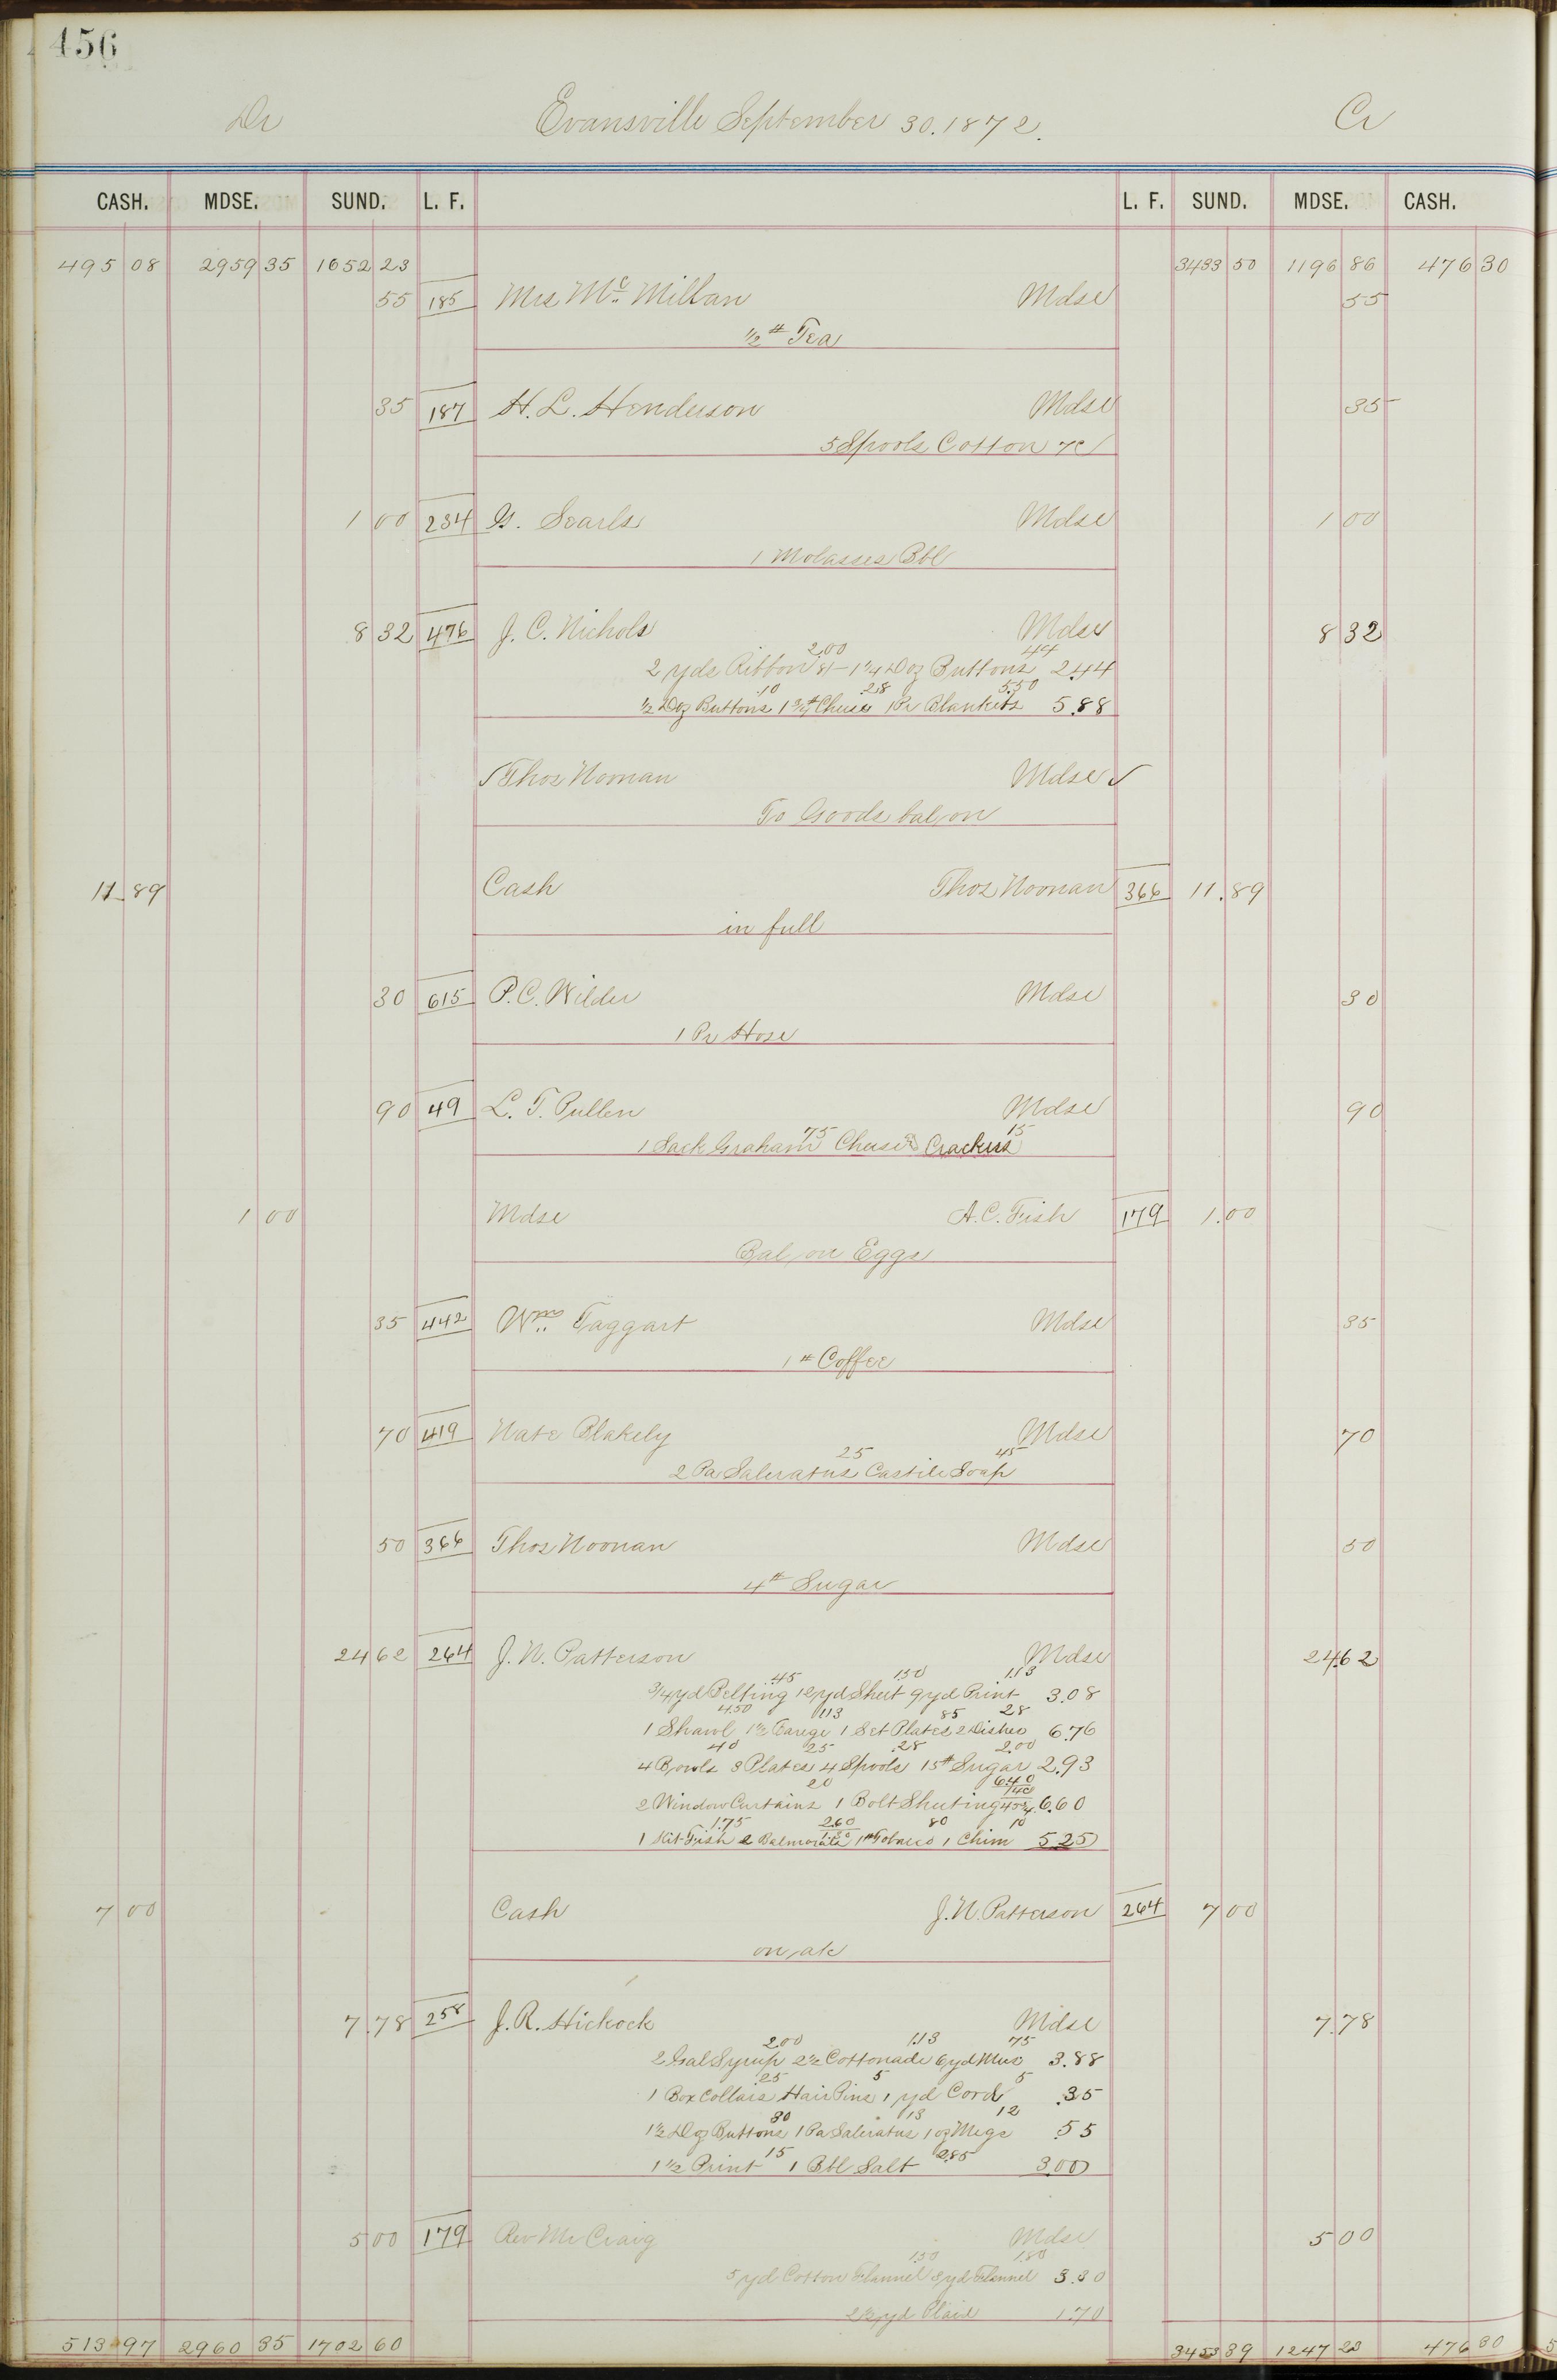 456
Dr Evansville September 30. 1872. Cr
CASH. MDSE. SUND. L. F. L. F. SUND. MDSE. CASH.
495 08 2959 35 1652 23 3433 50 1196 86 476 30
55 185 Mrs McMillan Mdse 55
1/2 # Tea
35 187 H. L. Henderson Mdse 35
5 Spools Cotton 7c
1 00 234 G. Searls Mdse 1 00
1 Molasses Bbl
8 32 476 J. C. Nichols Mdse 8 32
2.00 44
2 yds Ribbon 8/- 1 1/4 Doz Buttons 2.44
.10 .28 5.50
1/2 Doz Buttons 1 3/4 # Cheese 1 Pr Blankets 5.88
✓ Thos Noonan Mdse ✓
To Goods bal on
11 89 Cash Thos Noonan 366 11.89
in full
30 615 P. C. Wilder Mdse 30
1 Pr Hose
90 49 L. T. Pullen Mdse 90
75 15
1 Sack Graham Cheese & Crackers
1 00 Mdse A. C. Fish 179 1.00
Bal on Eggs
35 442 Wm Taggart Mdse 35
1 # Coffee
70 419 Nate Blakely Mdse 70
25 45
2 Pa Saleratus Castile Soap
50 366 Thos Noonan Mdse 50
4 # Sugar
24 62 264 J. N. Patterson Mdse 24.62
.45 1.50 1.13
3/4 yd Belting 12 yd Sheet 9 yd Print 3.08
4.50 1.13 85 28
1 Shawl 1 1/2 Barege 1 Set Plates 2 Dishes 6.76
40 25 .28 2.00
4 Bowls 3 Plates 4 Spools 15 # Sugar 2.93
20 6.40
2 Window Curtains 1 Bolt Sheeting 6.60
1.75 2.60 80 10
1 Kit Fish 2 Balmorals 1 # Tobacco 1 Chim 5 25
7 00 Cash J. N. Patterson 264 7 00
on a/c
7.78 258 J. R. Hickock Mdse 7.78
2.00 1.13 75
2 Gal Syrup 2 1/2 Cottonade 6 yd Mus 3.88
.25 5 5
1 Box Collars Hair Pins 1 yd Cord .35
30 13 12
1 1/2 Doz Buttons 1 Pa Saleratus 1 oz Megs .55
15 2.85
1 1/2 Print 1 Bbl Salt 3.00
5 00 179 Rev Mr Craig Mdse 5 00
1.50 1.80
5 yd Cotton Flannel 3 yd Flannel 3.30
2 1/2 yd Plaid 1.70
513 97 2960 35 1702 60 3453 39 1247 23 476 30